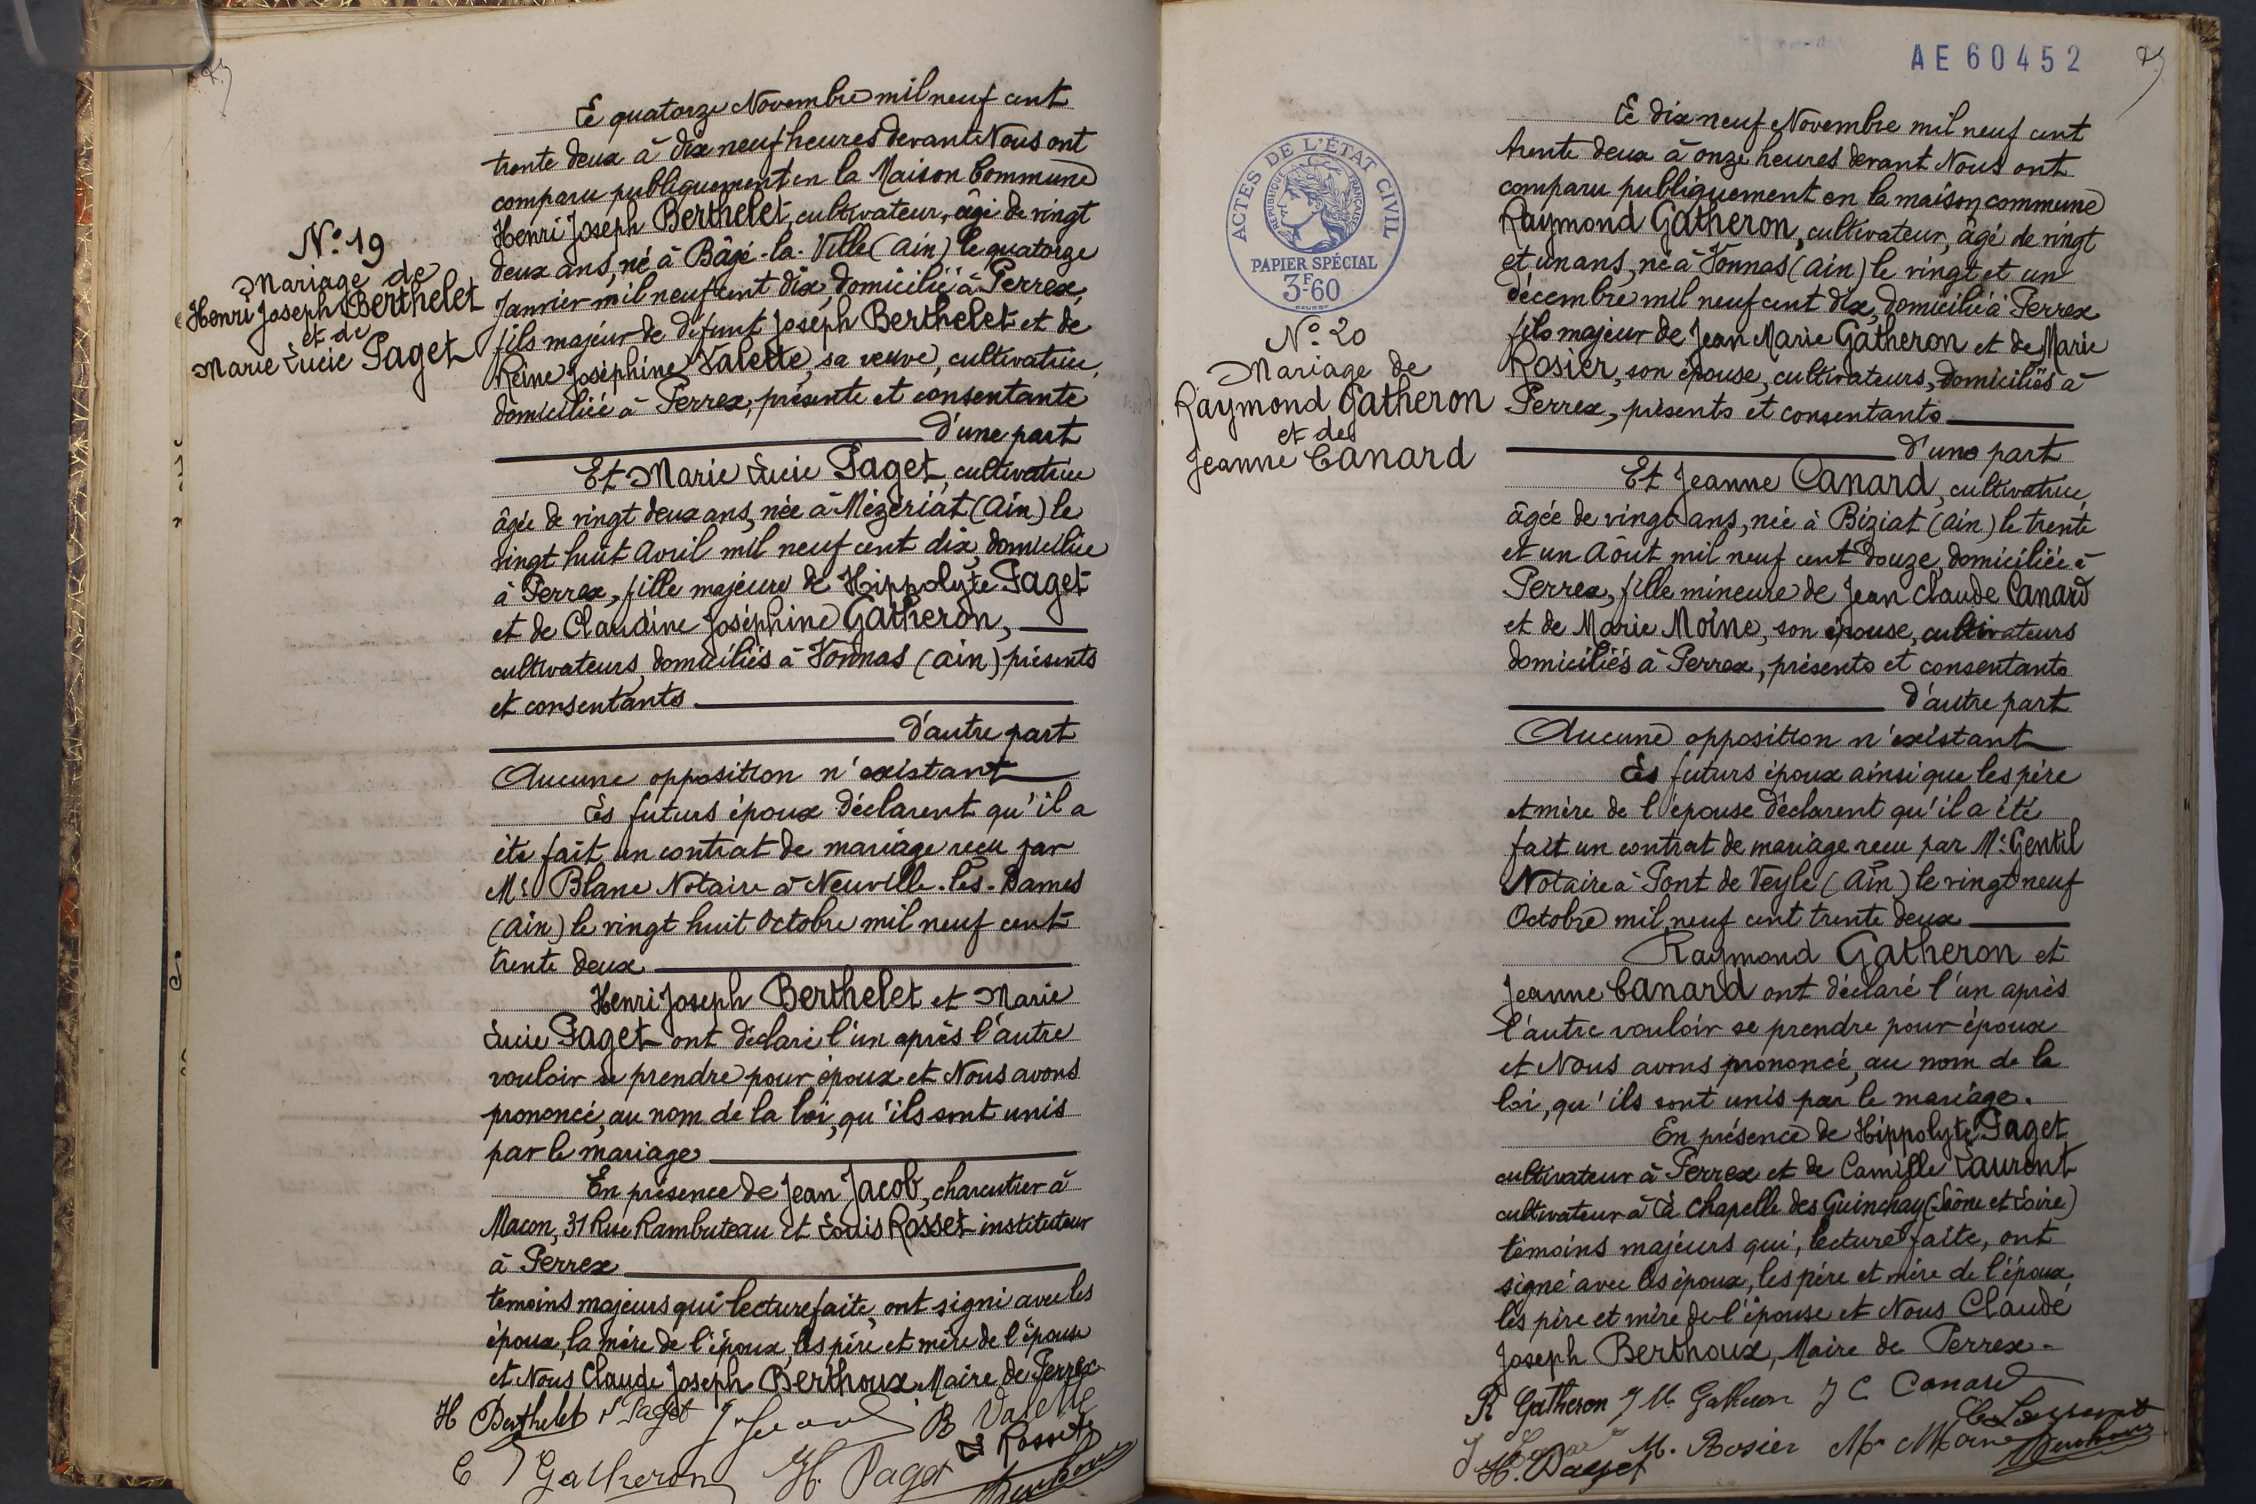 Le quatorze Novembre mil neuf cent
trente deux à dix neuf heures devant Nous ont
comparu publiquement en la Maison Commune
Henri Joseph Berthelet, cultivateur, âgé de vingt
deux ans, né à Bâgé-la-Ville (Ain) le quatorze
Janvier mil neuf cent dix, domicilié à Perrex,
fils majeur de défunt Joseph Berthelet et de
Reine Joséphine Valette, sa veuve, cultivatrice,
domiciliée à Perrex, présente et consentante
d'une part
N° 19
Mariage de
Henri Joseph Berthelet
et de
Marie Lucie Paget
Et Marie Lucie Paget, cultivatrice
âgée de vingt deux ans, née à Mézériat (Ain) le
vingt huit Avril mil neuf cent dix, domiciliée
à Perrex, fille majeure de Hippolyte Paget
et de Claudine Joséphine Gatheron,
cultivateurs, domiciliés à Vonnas (Ain) présents
et consentants
d'autre part
Aucune opposition n'existant
Les futurs époux déclarent qu'il a
été fait un contrat de mariage reçu par
Me Blanc Notaire à Neuville-les-Dames
(Ain) le vingt huit Octobre mil neuf cent
trente deux
Henri Joseph Berthelet et Marie
Lucie Paget ont déclaré l'un après l'autre
vouloir se prendre pour époux et Nous avons
prononcé, au nom de la loi, qu'ils sont unis
par le mariage
En présence de Jean Jacob, charcutier à
Macon, 31 Rue Rambuteau et Louis Rosset instituteur
à Perrex
témoins majeurs qui lecture faite, ont signé avec les
époux, la mère de l'époux, les père et mère de l'épouse
et Nous Claude Joseph Berthoux Maire de Perrex
H Berthelet Paget R Valette
L Rosset
C J Gatheron H. Paget Berthoux
AE 60452
ACTES DE L'ÉTAT CIVIL
RÉPUBLIQUE FRANÇAISE
PAPIER SPÉCIAL
3F60
N° 20
Mariage de
Raymond Gatheron
et de
Jeanne Canard
Le dix neuf Novembre mil neuf cent
trente deux à onze heures devant Nous ont
comparu publiquement en la maison commune
Raymond Gatheron, cultivateur, âgé de vingt
et un ans, né à Vonnas (Ain) le vingt et un
décembre mil neuf cent dix, domicilié à Perrex
fils majeur de Jean Marie Gatheron et de Marie
Rosier, son épouse, cultivateurs, domiciliés à
Perrex, présents et consentants
d'une part
Et Jeanne Canard, cultivatrice,
âgée de vingt ans, née à Biziat (Ain) le trente
et un Août mil neuf cent douze, domiciliée à
Perrex, fille mineure de Jean Claude Canard
et de Marie Moine, son épouse, cultivateurs
domiciliés à Perrex, présents et consentants
d'autre part
Aucune opposition n'existant
Les futurs époux ainsi que les père
et mère de l'épouse déclarent qu'il a été
fait un contrat de mariage reçu par Me Gentil
Notaire à Pont de Veyle (Ain) le vingt neuf
Octobre mil neuf cent trente deux
Raymond Gatheron et
Jeanne Canard ont déclaré l'un après
l'autre vouloir se prendre pour époux
et Nous avons prononcé, au nom de la
loi, qu'ils sont unis par le mariage.
En présence de Hippolyte Paget
cultivateur à Perrex et de Camille Laurent
cultivateur à La Chapelle des Guinchay (Saône et Loire)
témoins majeurs qui, lecture faite, ont
signé avec les époux, les père et mère de l'époux,
les père et mère de l'épouse et Nous Claude
Joseph Berthoux, Maire de Perrex.
R Gatheron J M Gatheron J C Canard
C Laurent
M. Rosier Me Moine Berthoux
H. Paget